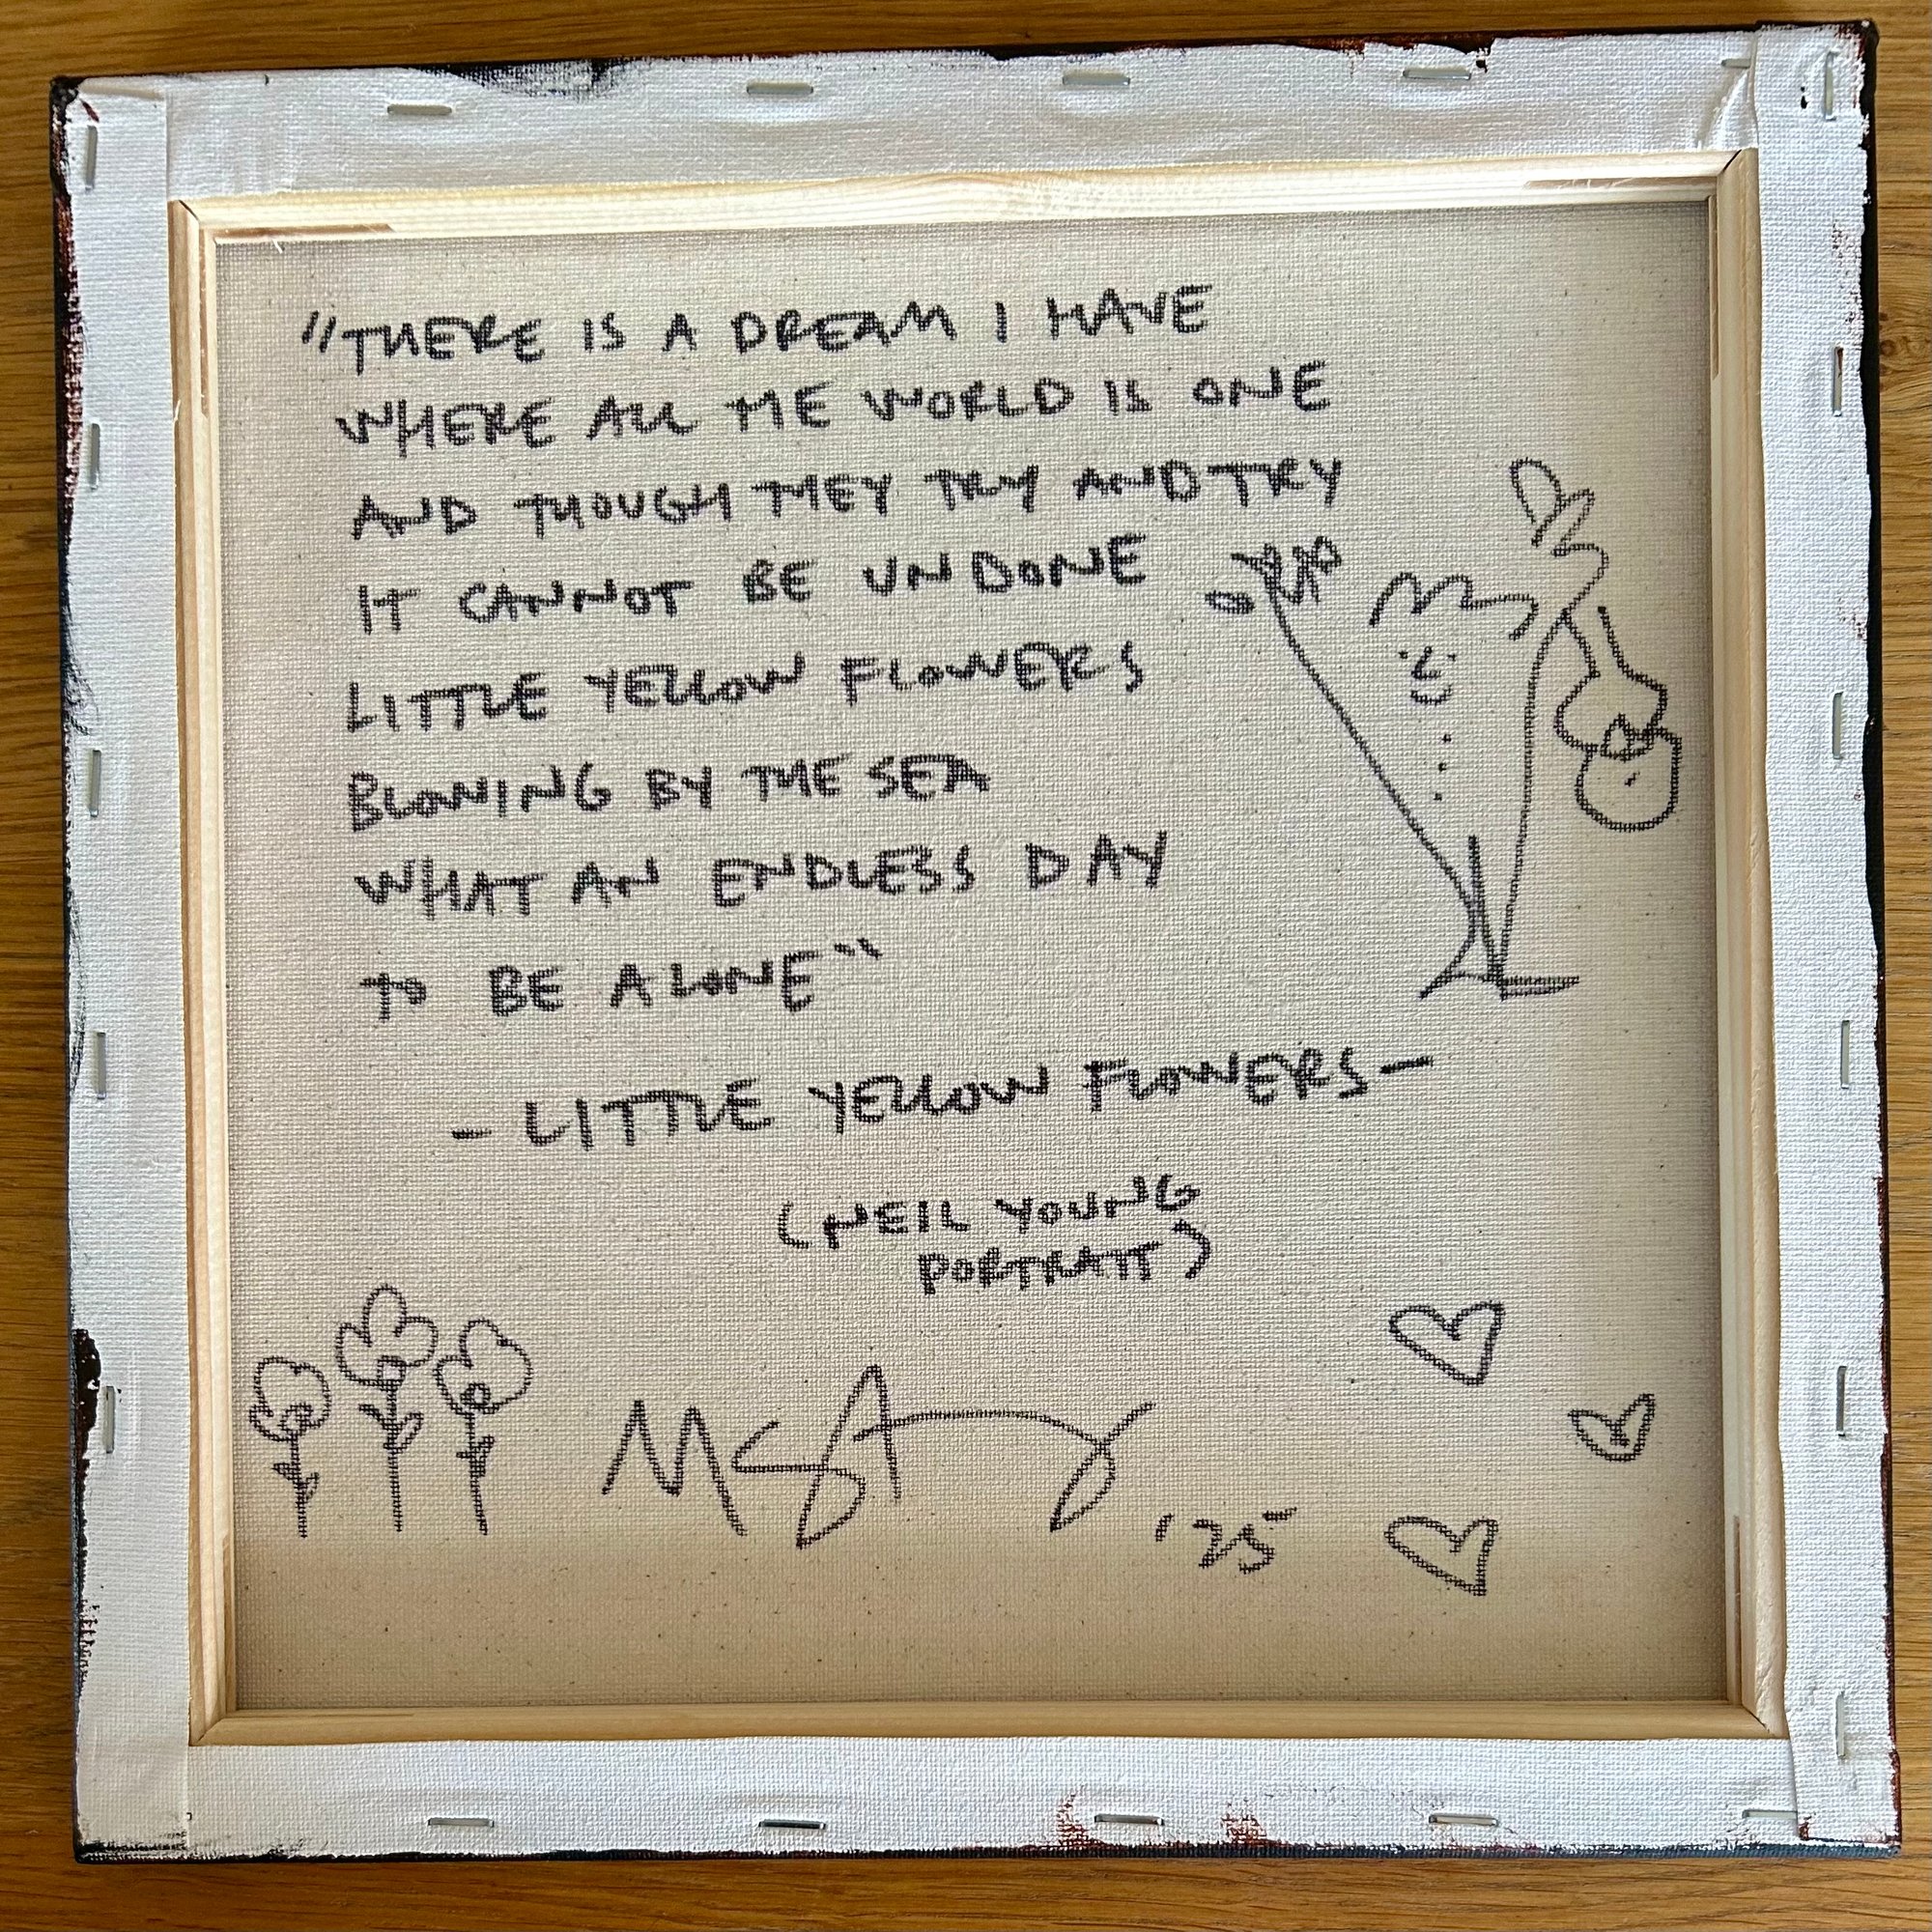 "THERE IS A DREAM I HAVE
WHERE ALL THE WORLD IS ONE
AND THOUGH THEY TRY AND TRY
IT CANNOT BE UNDONE
LITTLE YELLOW FLOWERS
BLOWING BY THE SEA
WHAT AN ENDLESS DAY
TO BE ALONE"
- LITTLE YELLOW FLOWERS -
(NEIL YOUNG
PORTRAIT)
'25